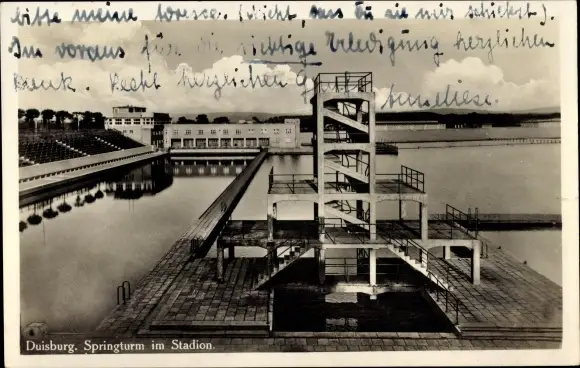 bitte meine Adresse. (nicht, dass Du sie mir schickst).
Im voraus für die richtige Erledigung herzlichen
Dank. Recht herzlichen Gruß
Anneliese.
Duisburg. Springturm im Stadion.